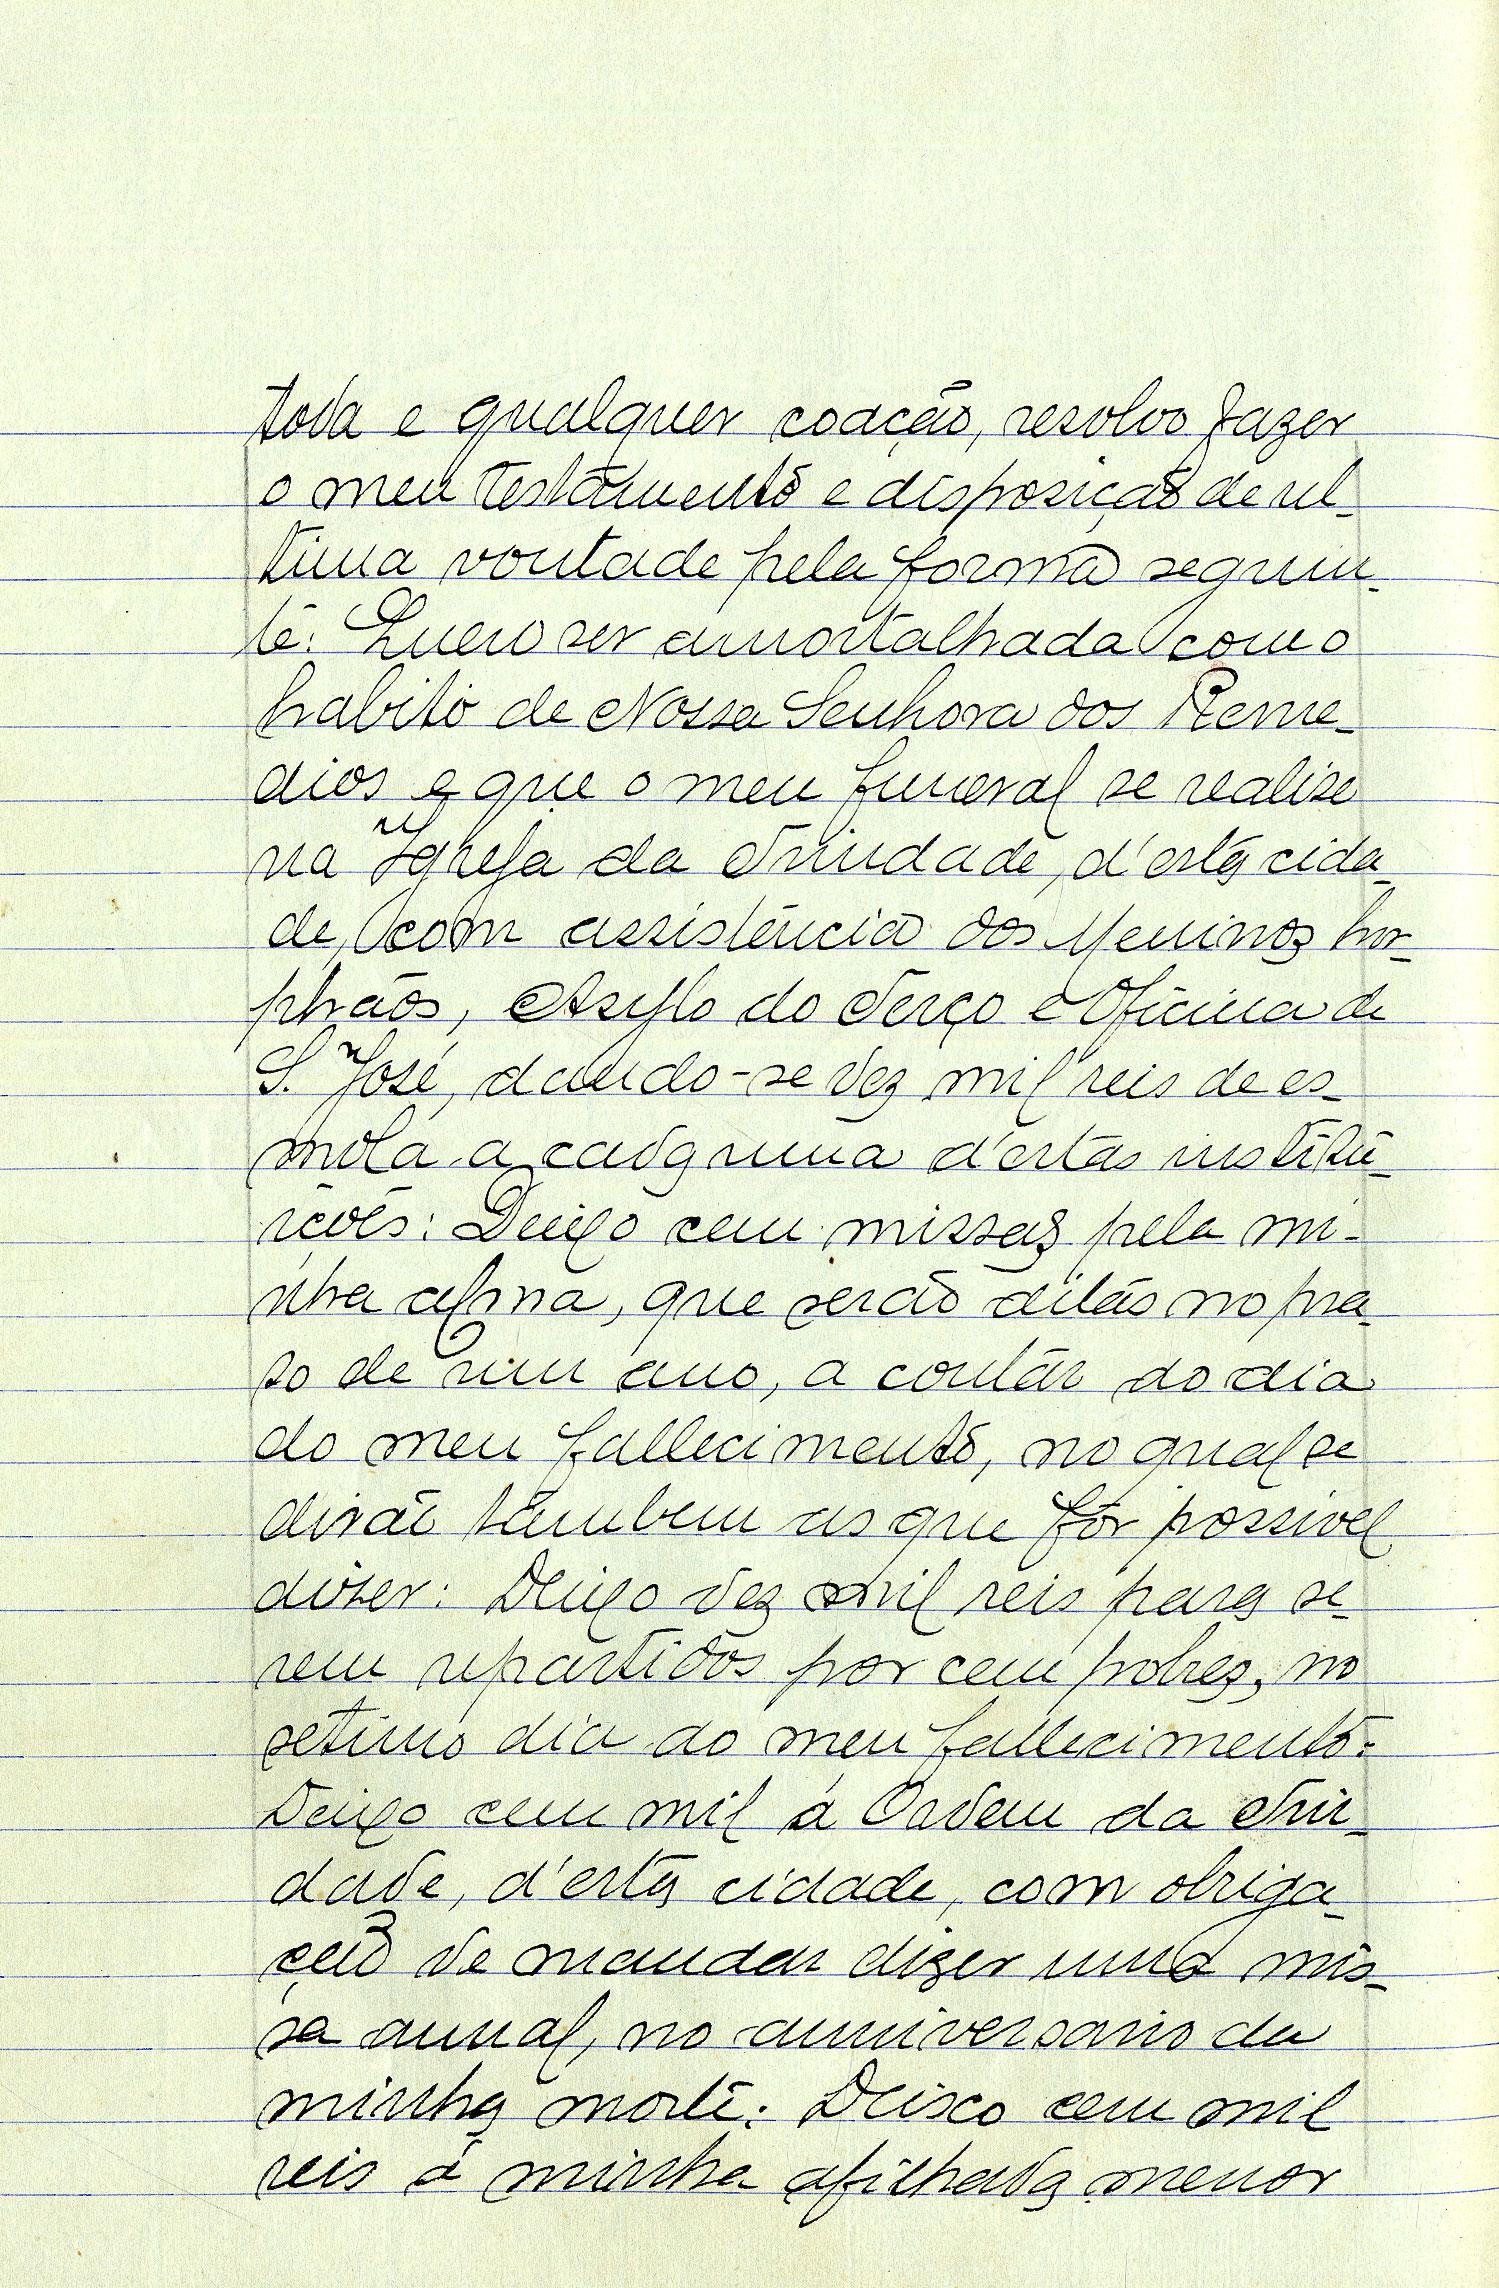 toda e qualquer coação, resolvo fazer
o meu testamento e disposição de ul-
tima vontade pela forma seguin-
te: Quero ser amortalhada com o
habito de Nossa Senhora dos Reme-
dios e que o meu funeral se realise
na Igreja da Trindade, d'esta cida-
de, com assistência dos Meninos hor-
phãos, Asylo do Terço e Oficina de
S. José, dando-se dez mil reis de es-
mola a cada uma d'estas institui-
ções: Deixo cem missas pela mi-
nha alma, que serão ditas no pra-
so de um ano, a contar do dia
do meu fallecimento, no qual se
dirão tambem as que fôr possivel
dizer: Deixo dez mil reis para se-
rem repartidos por cem pobres, no
setimo dia do meu fallecimento:
Deixo cem mil á Ordem da Trin-
dade, d'esta cidade, com obriga-
ção de mandar dizer uma mis-
sa annal, no anniversario da
minha morte: Deixo cem mil
reis á minha afilhada menor